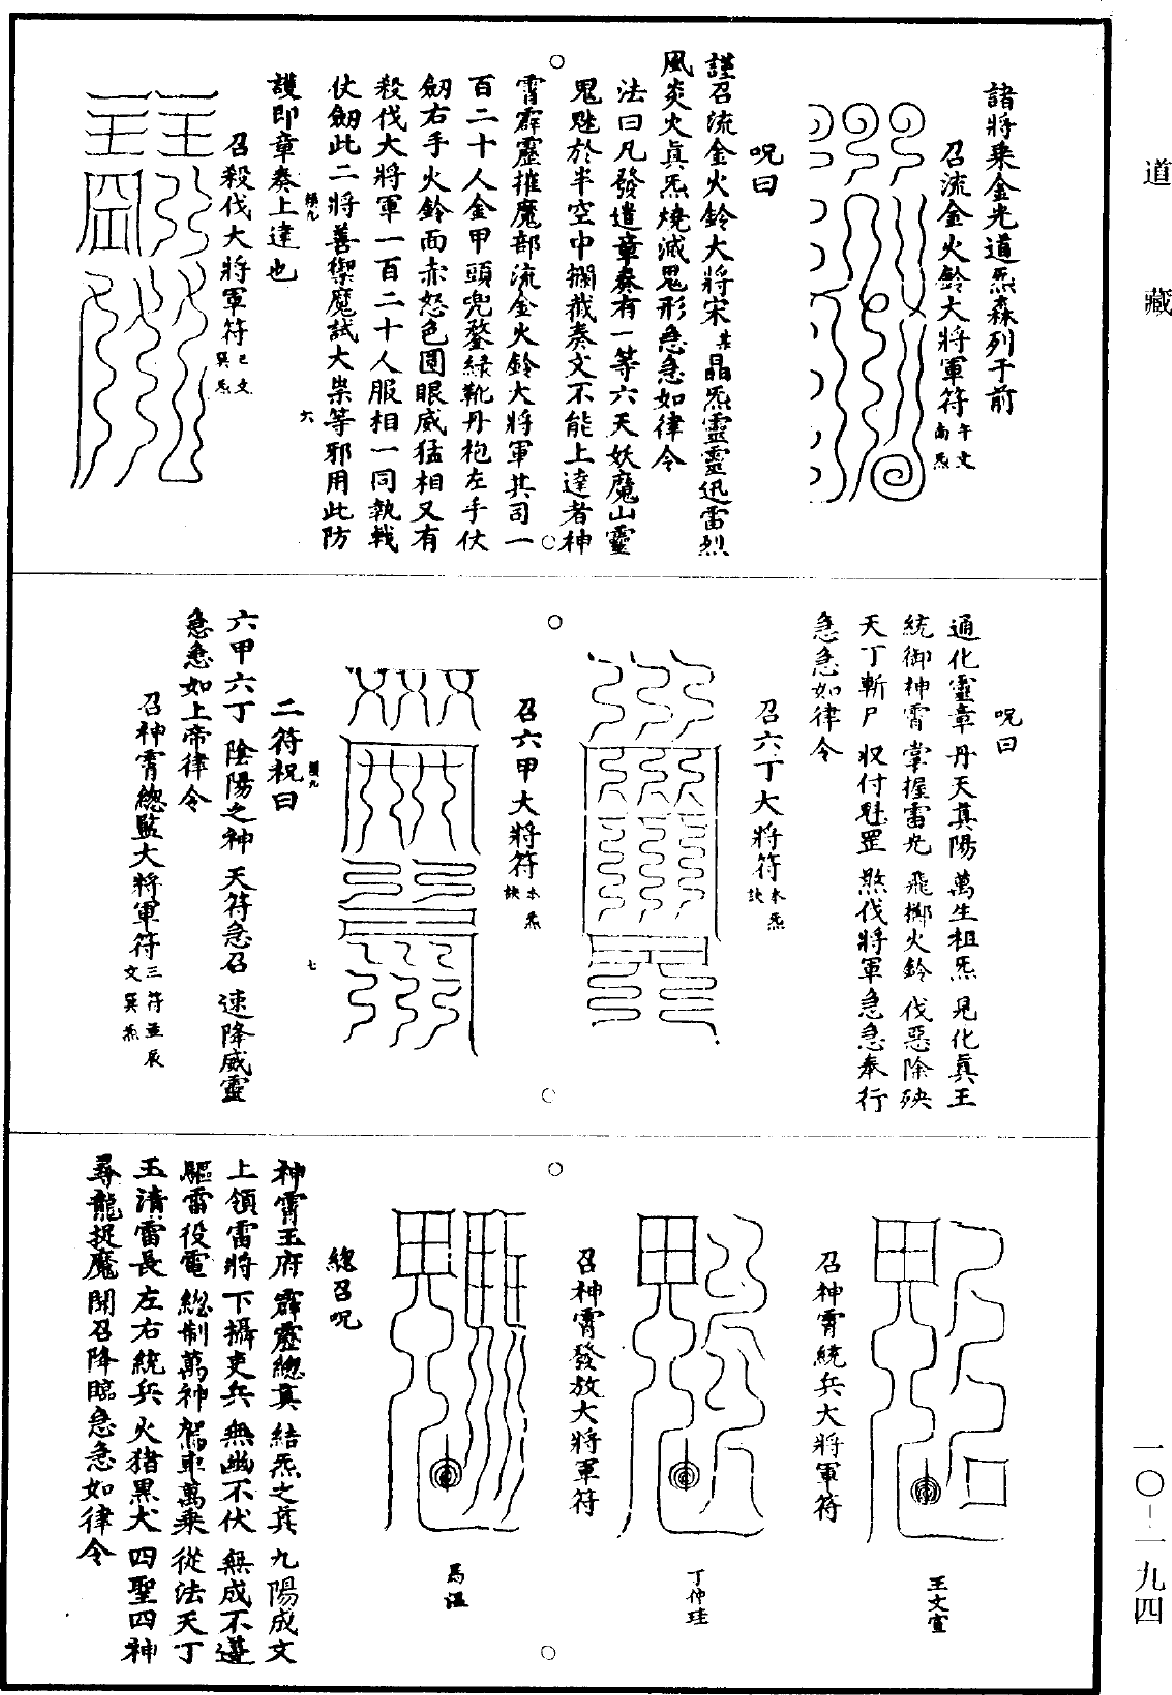 道藏
一〇-一九四
諸將乘金光道炁森列于前
召流金火鈴大將軍符午文南炁
呪曰
謹召流金火鈴大將宋某晶炁靈靈迅雷烈
風炎火真炁燒滅鬼形急急如律令
法曰凡發遣章奏有一等六天妖魔山靈
鬼魅於半空中攔截奏文不能上達者神
霄霹靂摧魔部流金火鈴大將軍其司一
百二十人金甲頭兜鍪綠靴丹袍左手仗
劒右手火鈴面赤怒色圓眼威猛相又有
殺伐大將軍一百二十人服相一同執戟
仗劒此二將善禦魔試大祟等邪用此防
護即章奏上達也
六
召殺伐大將軍符巳文巽炁
呪曰
通化靈章 丹天真陽 萬生祖炁 見化真王
統御神霄 掌握雷光 飛擲火鈴 伐惡除殃
天丁斬尸 収付魁罡 煞伐將軍 急急奉行
急急如律令
召六丁大將符本炁訣
召六甲大將符本炁訣
二符祝曰
七
六甲六丁 陰陽之神 天符急召 速降威靈
急急如上帝律令
召神霄總監大將軍符三符並辰文巽炁
王文宣
召神霄統兵大將軍符
丁仲珪
召神霄發放大將軍符
馬溫
總召呪
神霄玉府 霹靂總真 結炁之真 九陽成文
上領雷將 下攝吏兵 無幽不伏 無成不遵
驅雷役電 總制萬神 駕車萬乘 從法天丁
玉清雷長 左右統兵 火猪黑犬 四聖四神
尋龍捉魔 開召降臨 急急如律令